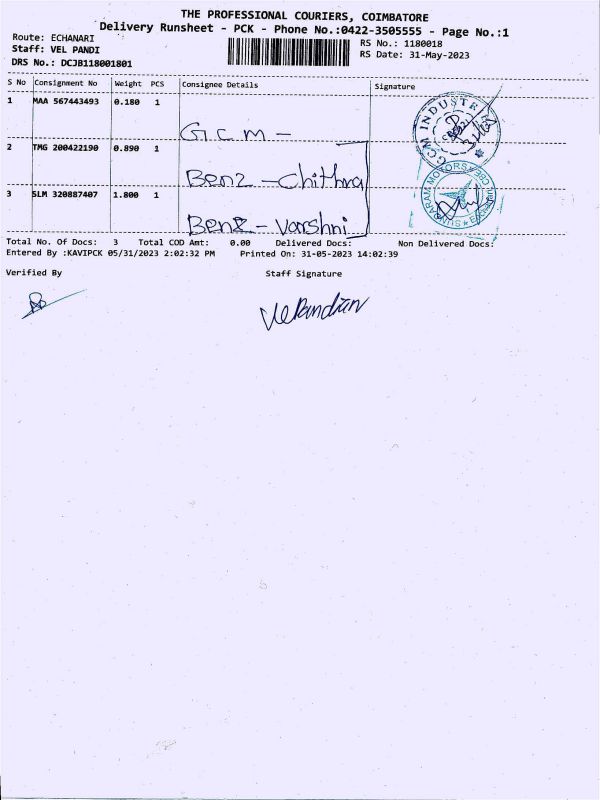 THE PROFESSIONAL COURIERS, COIMBATORE
Delivery Runsheet - PCK - Phone No.:0422-3505555 - Page No.:1
Route: ECHANARI
RS No.: 1180018
Staff: VEL PANDI
RS Date: 31-May-2023
DRS No.: DCJB118001801
S No Consignment No Weight PCS Consignee Details Signature
1 MAA 567443493 0.180 1
G.C.M -
GCM INDUSTR
2 TMG 200422190 0.890 1
Benz - Chithra
3 SLM 320887407 1.800 1
Benz - Varshni
SUNDARAM MOTORS CBE
Total No. Of Docs: 3 Total COD Amt: 0.00 Delivered Docs: Non Delivered Docs:
Entered By :KAVIPCK 05/31/2023 2:02:32 PM Printed On: 31-05-2023 14:02:39
Verified By Staff Signature
VelPandian